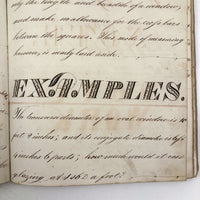 ply the length and breadth of a window,
and make no allowance for the cross bars
between the squares. This mode of measuring
however, is newly laid aside.
EXAMPLES.
The transverse diameter of an oval window is 10
feet 2 inches; and its conjugate diameter is 6 ft
inches 6 parts; how much would it cost
glazing at $ a foot;